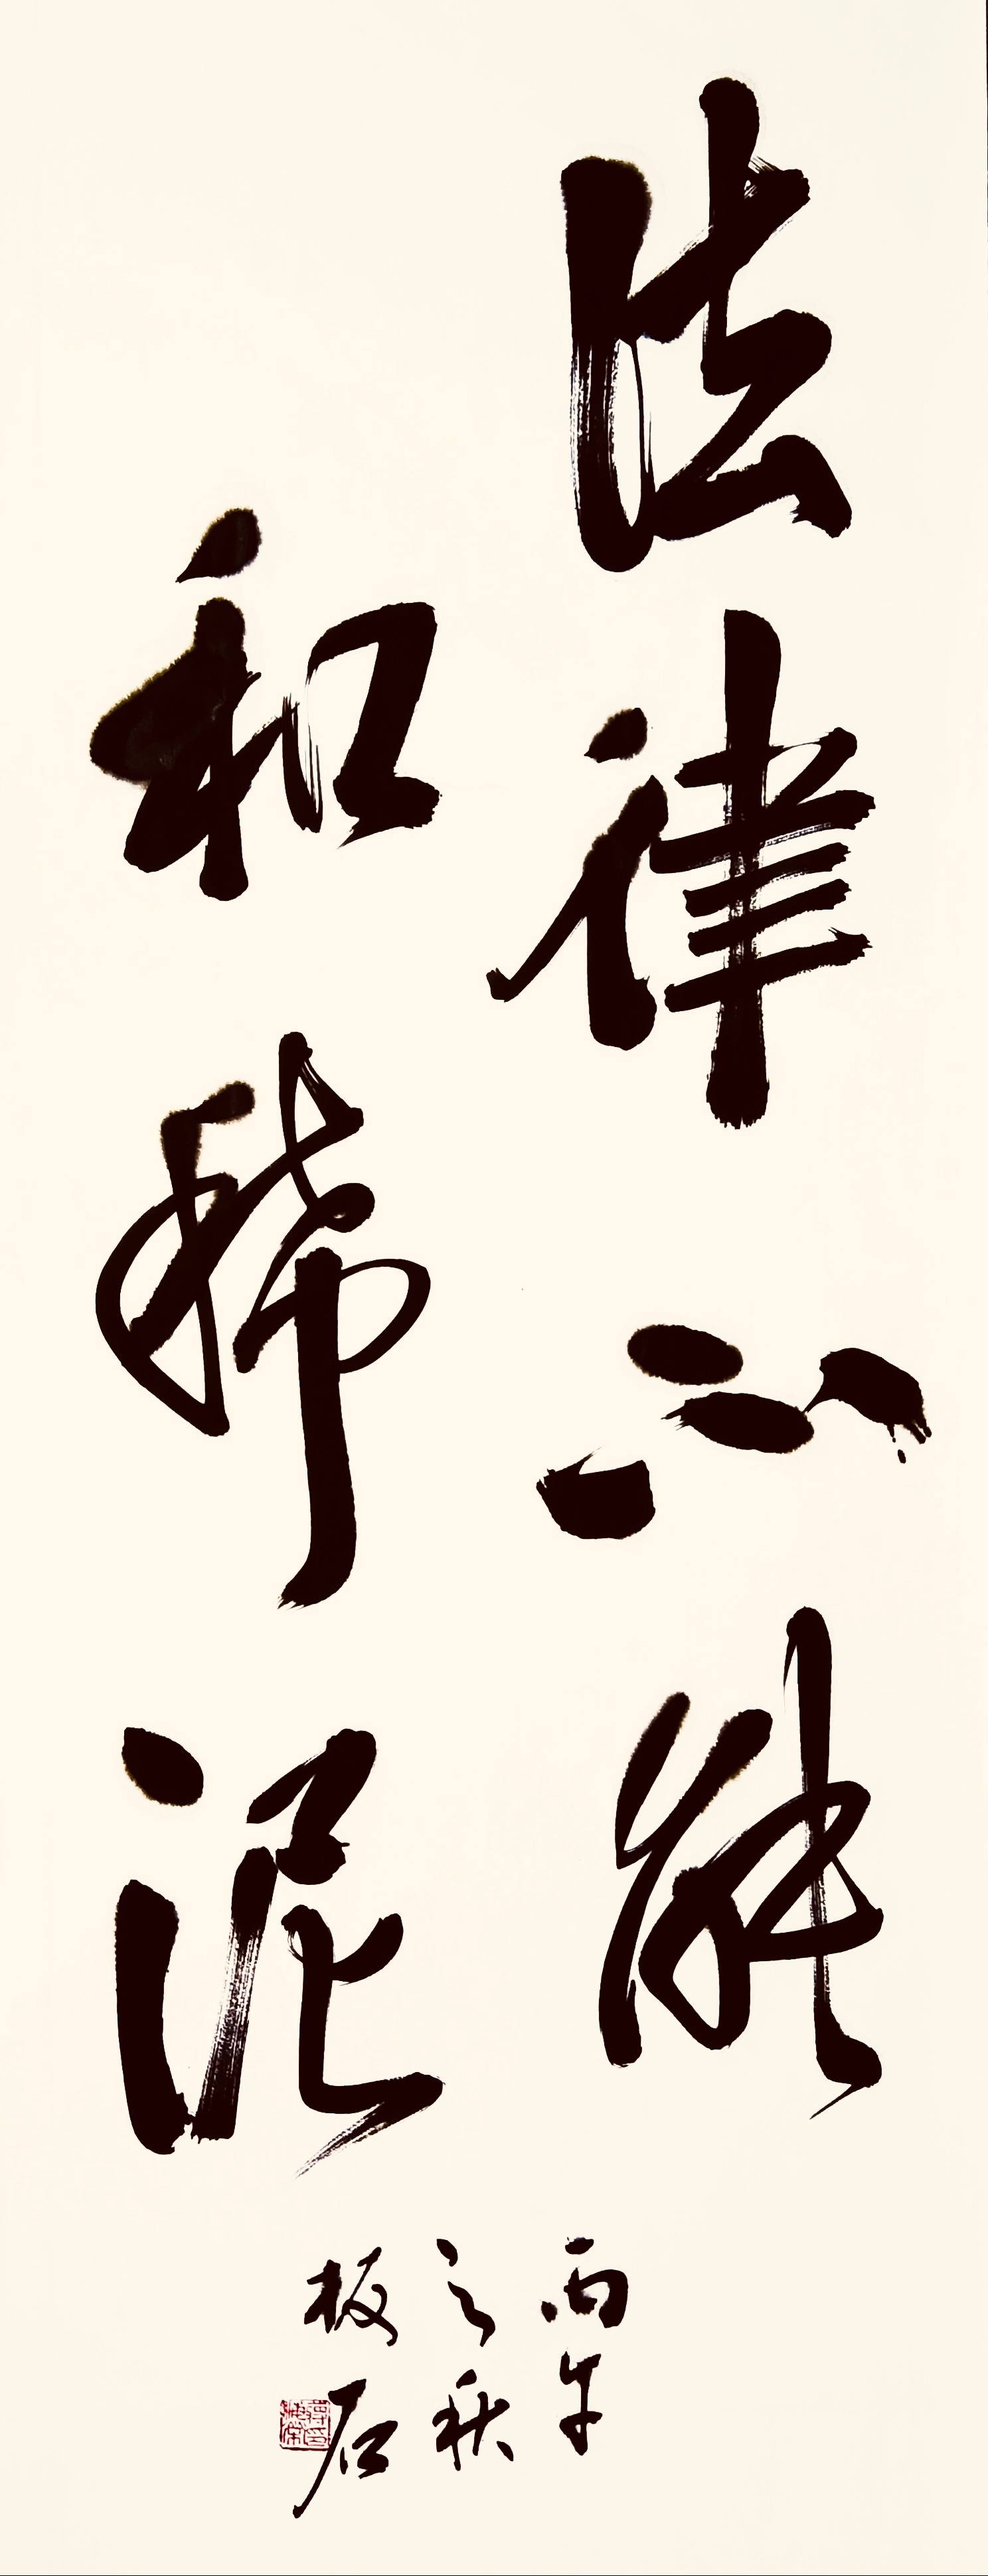 法律不能
和稀泥
丙午
之秋
板石